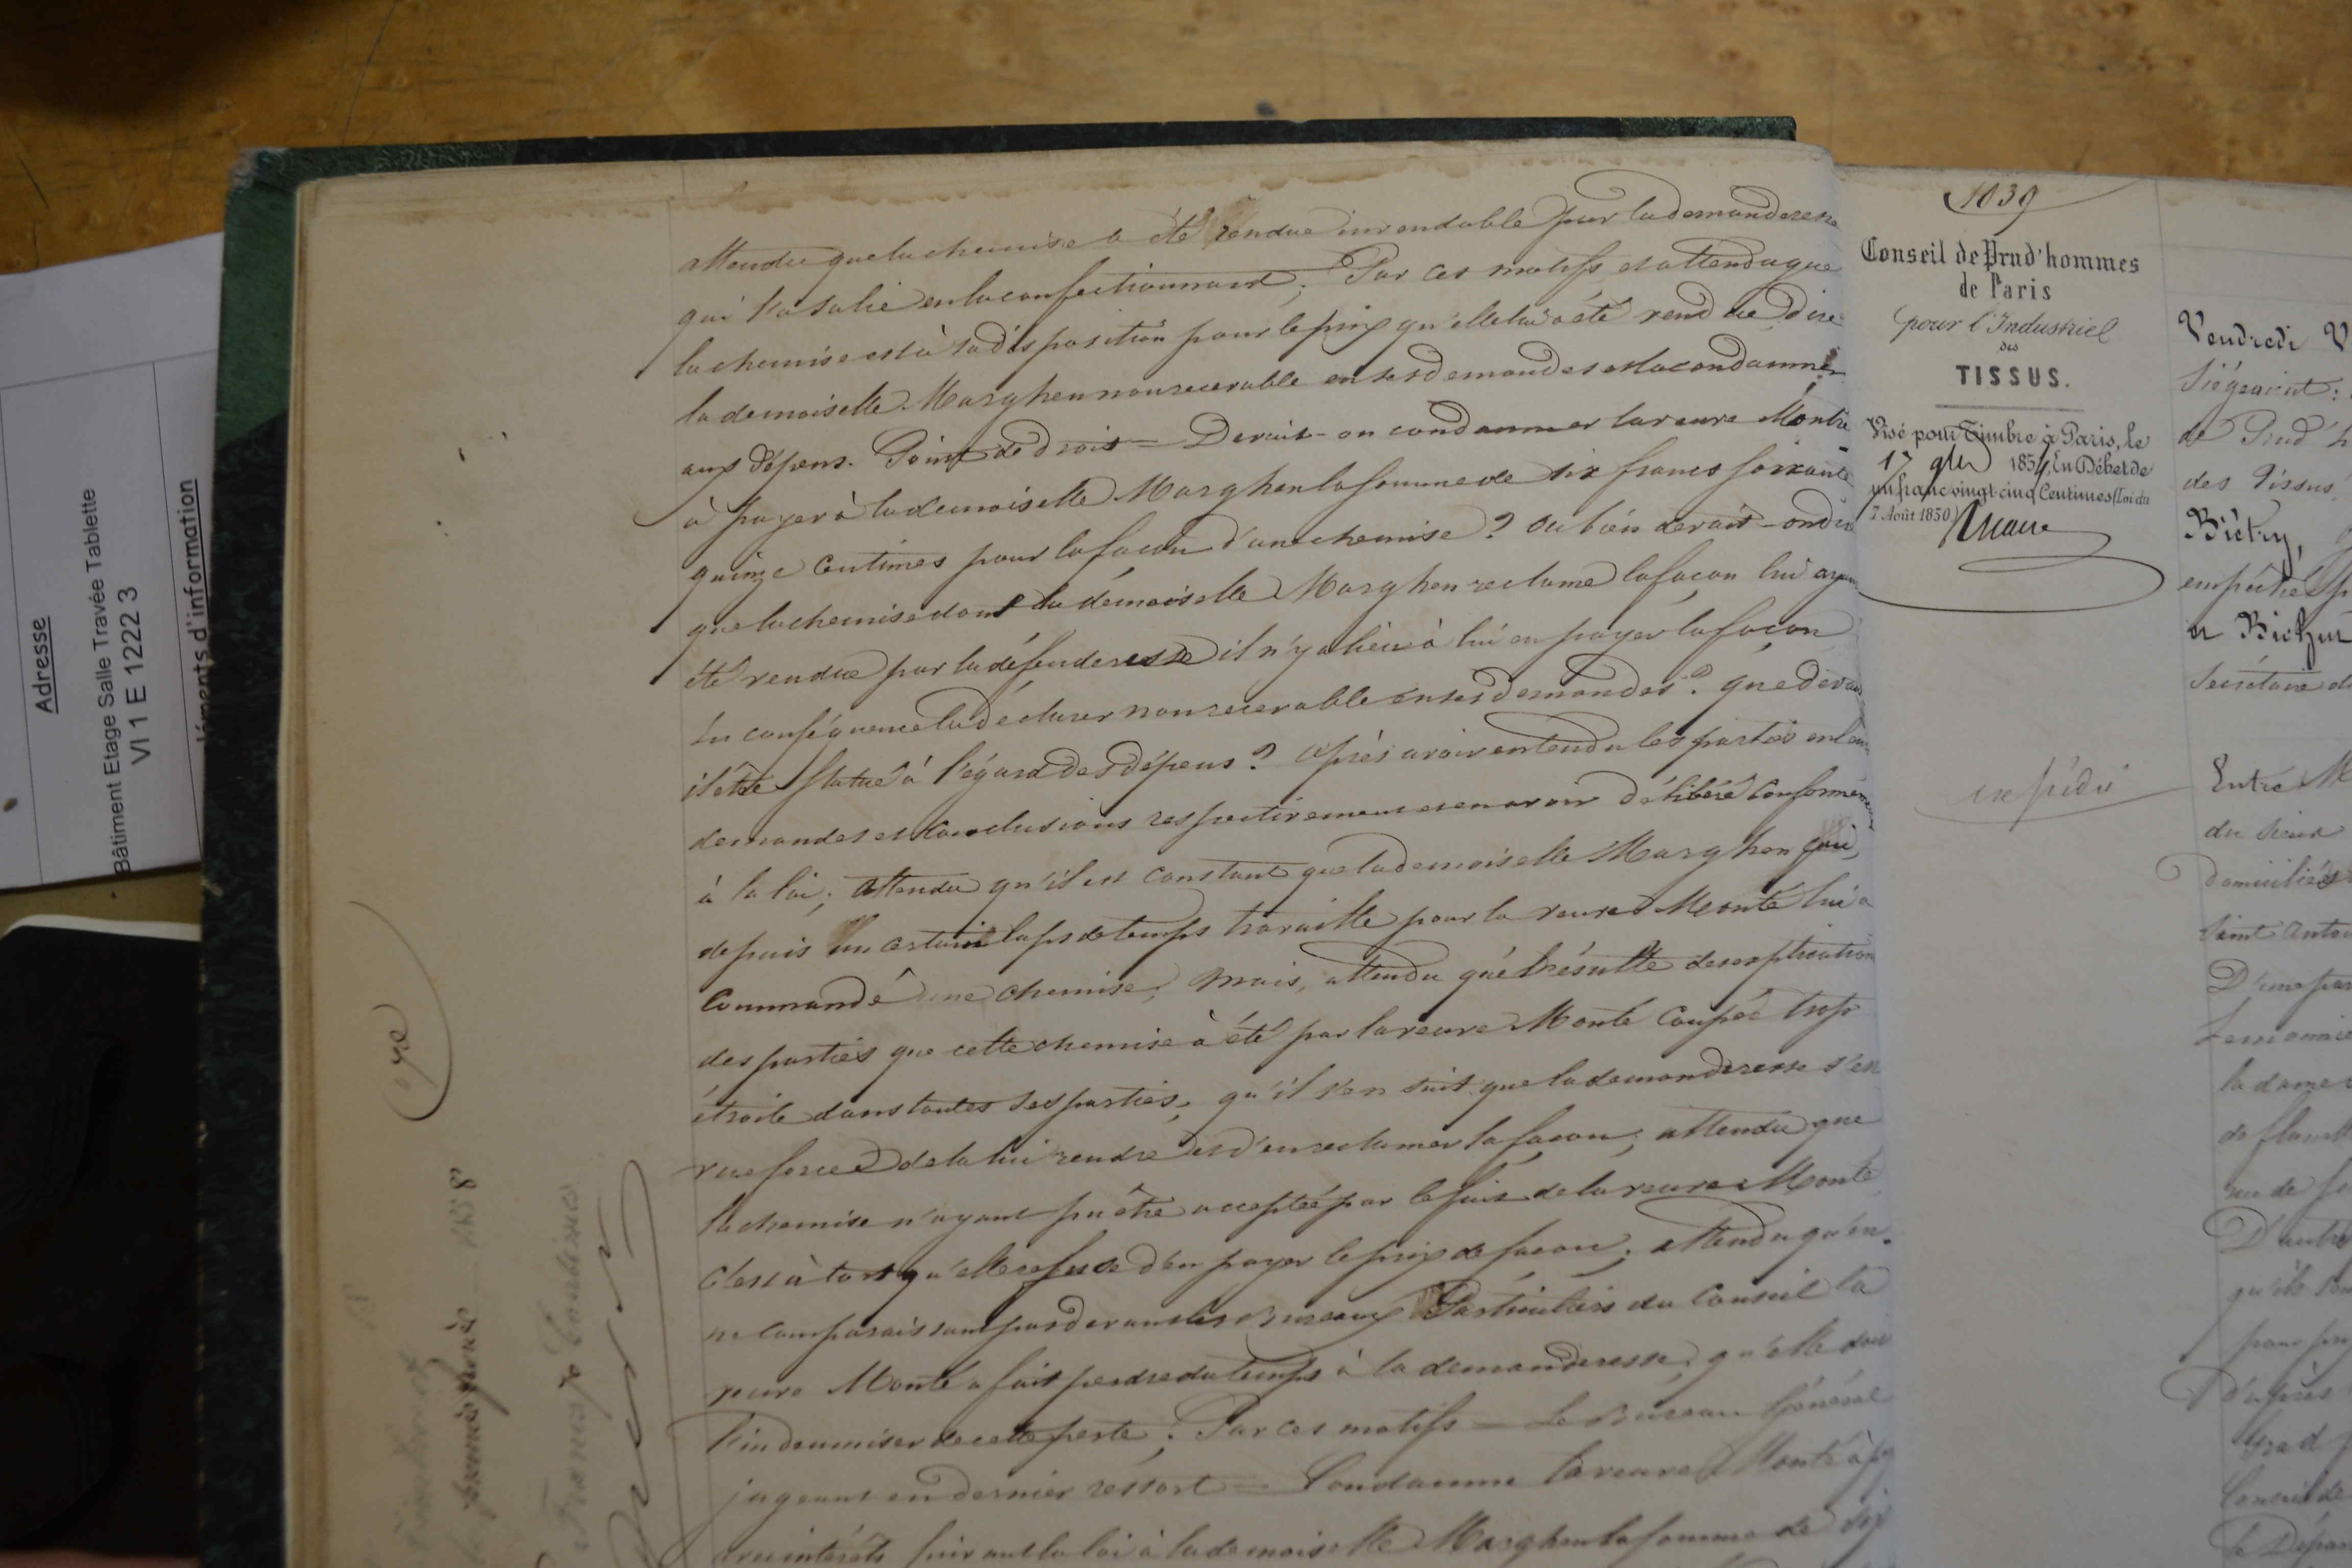 Adresse
Bâtiment Etage Salle Travée Tablette
VI 1 E 1222 3
léments d'information
attendu que la chemise a été rendue invendable par la demanderesse
qui l'a salie en la confectionnant; Par ces motifs et attendu que
la chemise est à sa disposition pour le prix qu'elle lui a été rendue dire
la demoiselle Marghen non recevable en ses demandes et la condamner
aux dépens. Point de droit = Devait-on condamner la veuve Monté
à payer à la demoiselle Marghen la somme de six francs soixante
quinze centimes pour la façon d'une chemise? ou bien devait-on dire
que la chemise dont la demoiselle Marghen reclame la façon lui ayant
été rendue par la défenderesse il n'y a lieu à lui en payer la façon
En conséquence la déclarer non recevable en ses demandes? que devait
il être statué à l'égard des dépens? après avoir entendu les parties en leurs
demandes et conclusions respectivement et en avoir délibéré conformément
à la loi; attendu qu'il est constant que la demoiselle Marghen qui,
depuis un certain laps de temps travaille pour la veuve Monté lui a
commandé une chemise, mais, attendu qu'il résulte des explications
des parties que cette chemise à été par la veuve Monté coupée trop
étroite dans toutes ses parties, qu'il s'en suit que la demanderesse s'est
vue forcée de la lui rendre et d'en reclamer la façon; attendu que
la chemise n'ayant pu être acceptée par le fait de la veuve Monté
c'est à tort qu'elle refuse d'en payer le prix de façon; attendu qu'en
ne comparaissant pas devant les Bureaux Particuliers du Conseil la
veuve Monté a fait perdre du temps à la demanderesse, qu'elle doit
l'indemniser de cette perte; Par ces motifs = Le Bureau Général
jugeant en dernier ressort = Condamne la veuve Monté à
intérêts suivant la loi à la demoiselle Marghen la somme de six
1039
Conseil de Prud'hommes
de Paris
pour l'Industriel
des
TISSUS.
Visé pour Timbre à Paris, le
17 9bre 1854, En Débet de
un franc vingt cinq Centimes (Loi du
7 Août 1850)
expédié
Vendredi V
Siégeant:
de Prud'h
des Tissus,
Biétry,
empêché
et
Secrétaire d
Entre M
du sieur
domiciliés
Saint Anto
D'une par
la dame
de flanelle
rue de
D'autre
qu'ils
D'après
Conseil de
le Dépar
francs Centimes